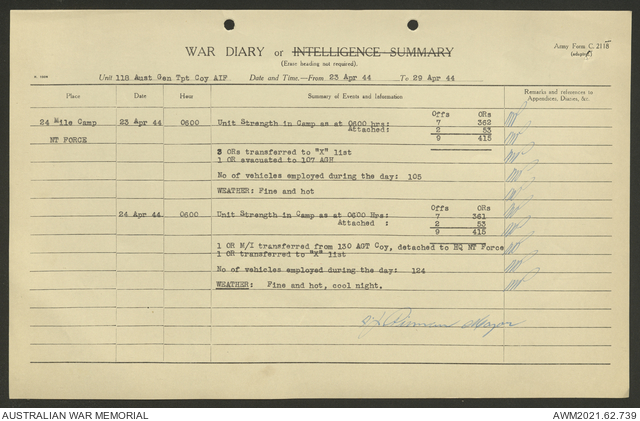 Army Form C. 2118
(adapted)
WAR DIARY or INTELLIGENCE SUMMARY
(Erase heading not required).
Unit 118 Aust Gen Tpt Coy AIF. Date and Time.—From 23 Apr 44 To 29 Apr 44
Place Date Hour Summary of Events and Information Remarks and references to Appendices, Diaries, &c.
Offs ORs
24 Mile Camp 23 Apr 44 0600 Unit Strength in Camp as at 0600 hrs: 7 362
Attached: 2 53
NT FORCE 9 415
3 ORs transferred to "X" list
1 OR evacuated to 107 AGH
No of vehicles employed during the day: 105
WEATHER: Fine and hot
Offs ORs
24 Apr 44 0600 Unit Strength in Camp as at 0600 Hrs: 7 361
Attached : 2 53
9 415
1 OR M/I transferred from 130 AGT Coy, detached to HQ NT Force
1 OR transferred to "X" list
No of vehicles employed during the day: 124
WEATHER: Fine and hot, cool night.
Major
AUSTRALIAN WAR MEMORIAL AWM2021.62.739